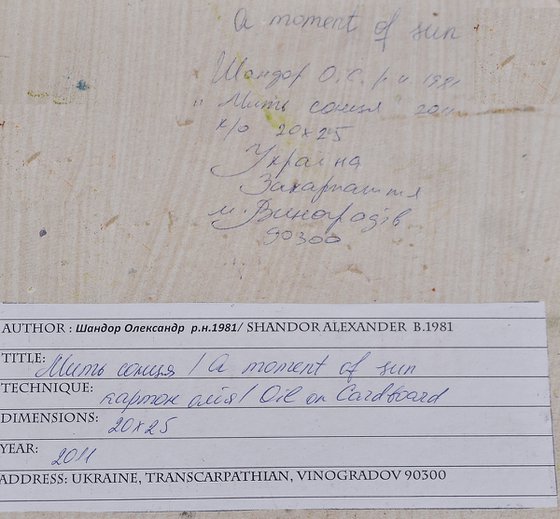 A moment of sun
Шандор О.С. р.н 1981
"Мить сонця" 2011
к/о 20x25
Україна
Закарпаття
м. Виноградів
90300
AUTHOR : Шандор Олександр р.н.1981/ SHANDOR ALEXANDER B.1981
TITLE: Мить сонця / A moment of sun
TECHNIQUE: картон олія/ Oil on Cardboard
DIMENSIONS: 20x25
YEAR: 2011
ADDRESS: UKRAINE, TRANSCARPATHIAN, VINOGRADOV 90300